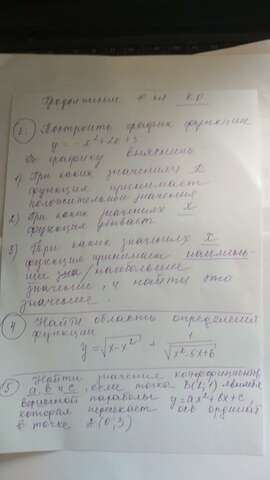 Продолжение К.Р
② Построить график функции
y = -x²+2x+3
По графику выяснить
1) При каких значениях x
функция принимает
положительные значения
2) При каких значениях x
функция убывает
3) При каких значениях x
функция принимает наимень-
шее /наибольшее
значение, и найти это
значение.
④ Найти область определения
функции
y = √x-x² + 1/√x²-5x+6
⑤ Найти значения коэффициентов
a, b и c, если точка B(1;1) является
вершиной параболы y=ax²+bx+c,
которая пересекает ось ординат
в точке (0;3)